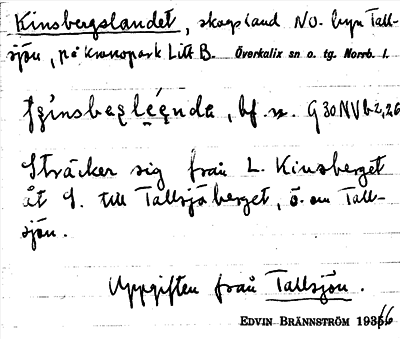 Kinsbergslandet, skogsland NO. byn Tall-
sjön, på kronopark Litt B. Överkalix sn o. tg. Norrb. l.
bf. n. G30NVb2,26
Sträcker sig från L. Kinsberget
åt S. till Tallsjöberget, ö. om Tall-
sjön.
Uppgiften från Tallsjön.
EDVIN BRÄNNSTRÖM 1936